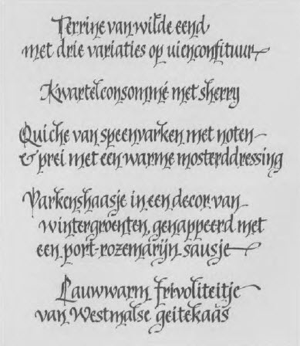 Terrine van wilde eend
met drie variaties op uienconfituur
Kwartelconsommé met sherry
Quiche van speenvarken met noten
& prei met een warme mosterddressing
Varkenshaasje in een decor van
wintergroenten, genappeerd met
een port-rozemarijn sausje
Lauwwarm frivoliteitje
van Westmalse geitekaas